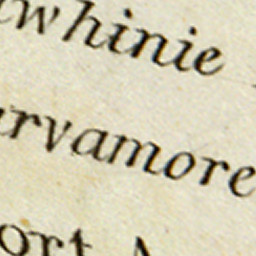 whinie
rvamore
ort